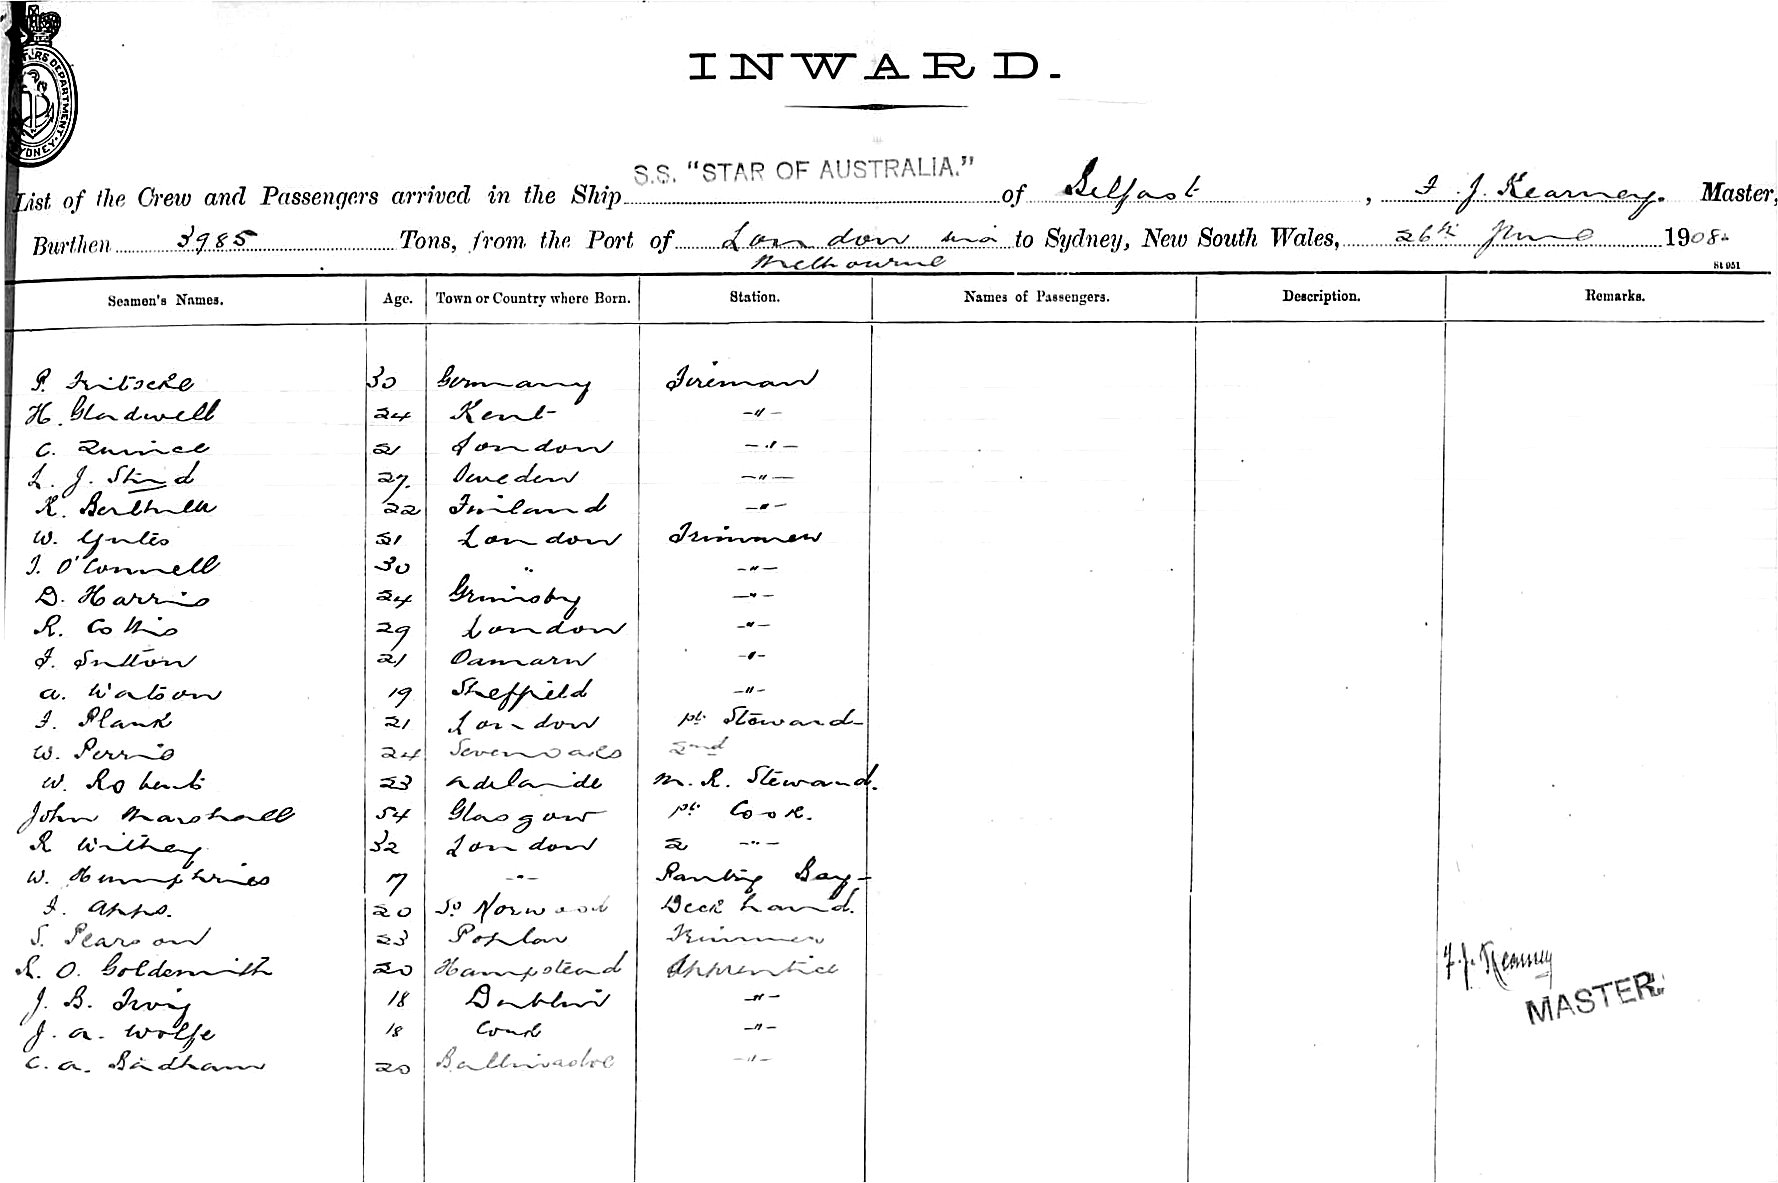 INWARD.
S.S. "STAR OF AUSTRALIA."
List of the Crew and Passengers arrived in the Ship of Belfast, F. J. Kearney. Master,
Burthen 3985 Tons, from the Port of London via to Sydney, New South Wales, 26th June 1908.
Melbourne
St 951
Seamen's Names. Age. Town or Country where Born. Station. Names of Passengers. Description. Remarks.
P. Fritsche 30 Germany Fireman
H. Gladwell 24 Kent -"-
C. Quince 21 London -"-
L. J. 27. Sweden -"-
K. 22 Finland -"-
W. 21 London Trimmer
J. O'Connell 30 " -"-
D. Harris 24 Grimsby -"-
R. Collis 29 London -"-
F. Sutton 21 Oamaru -"-
A. Watson 19 Sheffield -"-
F. Plank 21 London Steward
W. Perris 24 Sevenoaks 2nd
W. Roberts 23 Adelaide M. R. Steward.
John Marshall 54 Glasgow Cook.
R Withey 32 London 2 -"-
W. Humphries 17 -"- Pantry Boy
F. Apps. 20 So Norwood Deck hand.
S. Pearson 23 Poplar Trimmer
R. O. Goldsmith 20 Hampstead Apprentice
F. J. Kearney
MASTER.
J. B. 18 Dublin -"-
J. A. Wolfe 18 Cork -"-
C. A. Badham 20 -"-